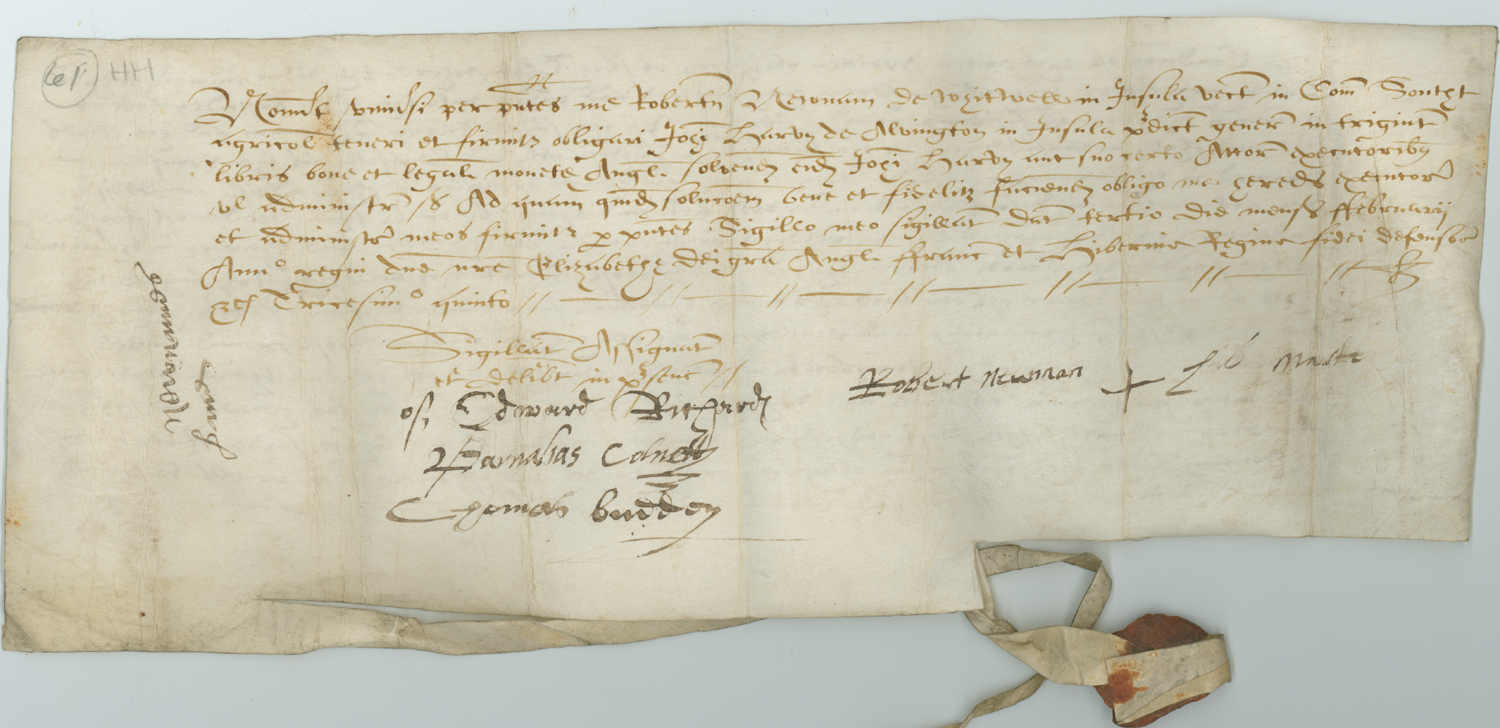 Nou'int vniu'si per p'ntes me Robertu' Newnam de Whitwell in Insula vect' in Com' Southt
agricol' teneri et firmit' obligari Joh'i Harvy de Alvington in Insula p'dict' genero' in trigint'
libris bone et legal' monete Angl' solvend' eid' Joh'i Harvy aut suo certo Attor' executoribus
vl administr' s Ad quam quid' soluc'oem bene et fidelit' faciend' obligo me hered' executor'
et administr' meos firmit' p p'ntes Sigillo meo sigillat' Dat' tertio die mens' ffebruarij
Ann° regni d'ne n're Elizabethe dei gra' Angl' ffranc' et Hibernie Regine fidei defensor'
&c Tricesimo quinto
Sigillat' Assignat'
et delib't in p'senc'
of Edward Richard
Barnabas Colnett
Thomas budden
Robert Newman